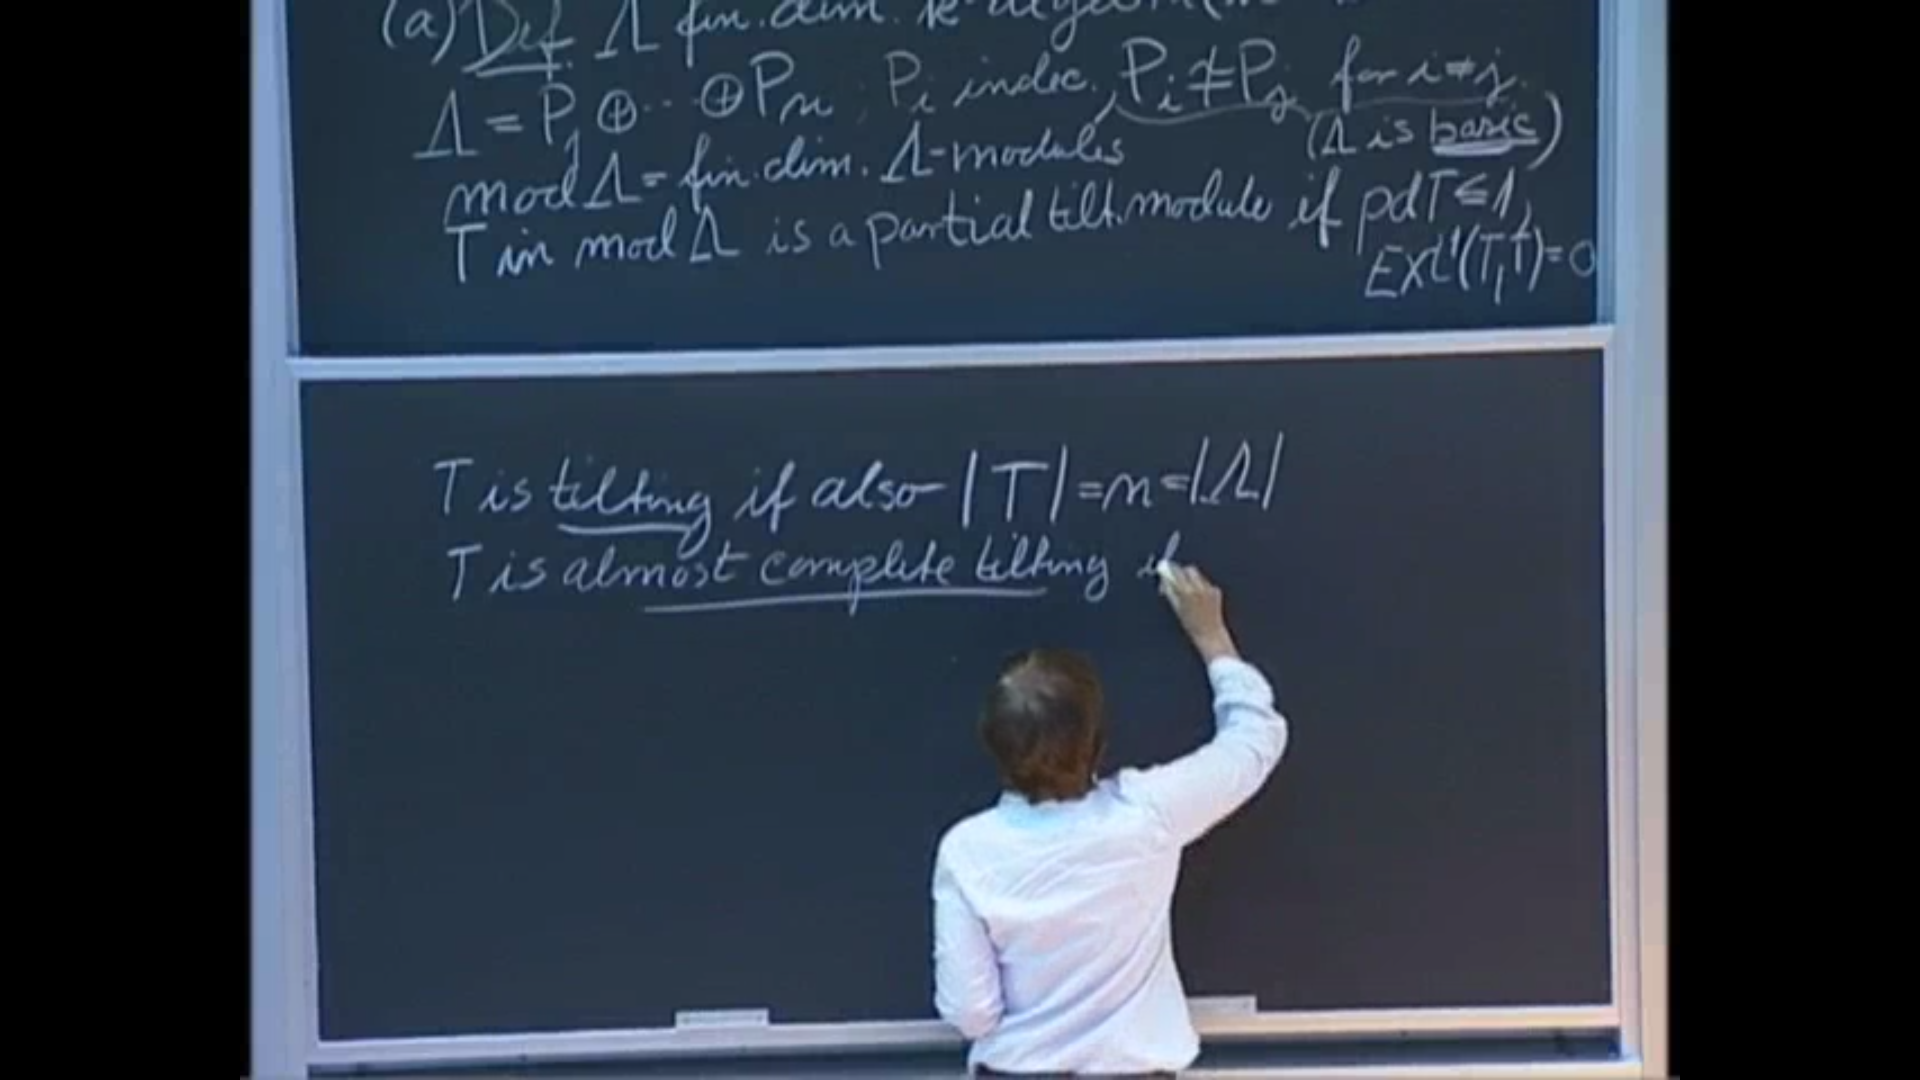 (a) Def. Λ fin. dim. k-algebra
Λ = P₁ ⊕ ... ⊕ Pₙ ; Pᵢ indec., Pᵢ ≇ Pⱼ for i ≠ j.
(Λ is basic)
mod Λ = fin. dim. Λ-modules
T in mod Λ is a partial tilt. module if pd T ≤ 1,
Ext¹(T, T) = 0
T is tilting if also |T| = n = |Λ|
T is almost complete tilting if